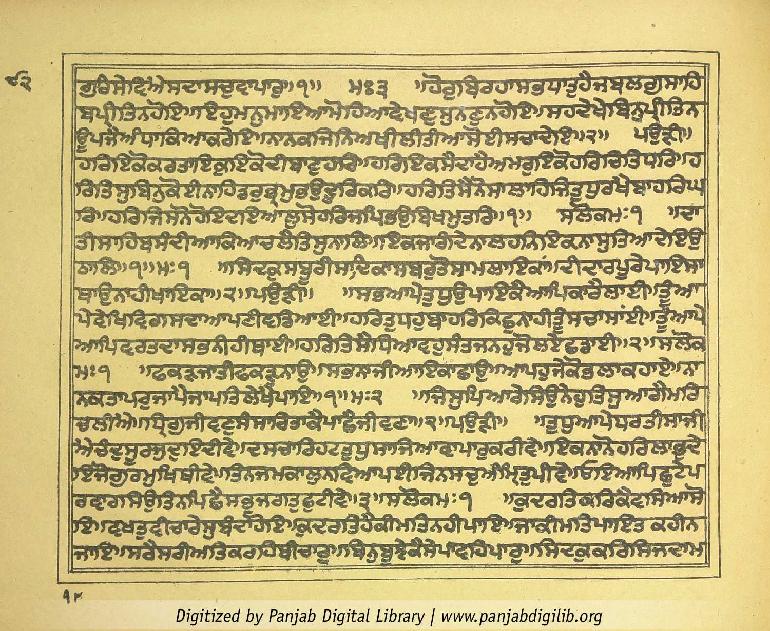 ੮੩
ਗੁਰਿਸੇਵਿਐਏਸਦਾਸਚੁਵਾਪਾਰੁ॥੧॥ ਮਃ੩ ॥ਹੋਰੁਬਿਰਹਾਸਭਧਾਤੁਹੈਜਬਲਗੁਸਾਹਿ
ਬਪ੍ਰੀਤਿਨਹੋਇ॥ਇਹੁਮਨੁਮਾਇਆਮੋਹਿਆਵੇਖਣੁਸੁਨਣੁਨਹੋਇ॥ਸਹਦੇਖੇਬਿਨੁਪ੍ਰੀਤਿਨ
ਊਪਜੈਅੰਧਾਕਿਆਕਰੇਇ॥ਨਾਨਕਜਿਨਿਅਖੀਲੀਤੀਆਸੋਈਸਚਾਦੇਇ॥੨॥ ਪਉੜੀ॥
ਹਰਿਇਕੋਕਰਤਾਇਕੁਇਕੋਦੀਬਾਣੁਹਰਿ॥ਹਰਿਇਕਸੈਦਾਹੈਅਮਰੁਇਕੋਹਰਿਚਿਤਿਧਰਿ॥ਹ
ਰਿਤਿਸੁਬਿਨੁਕੋਈਨਾਹਿਡਰੁਭ੍ਰਮੁਭਉਦੂਰਿਕਰਿ॥ਹਰਿਤਿਸੈਨੋਸਾਲਾਹਿਜਿਤੁਧੁਰਖੈਬਾਹਰਿਘ
ਰਿ॥ਹਰਿਜਿਸਨੋਹੋਇਦਇਆਲੁਸੋਹਰਿਜਪਿਭਉਬਿਖਮੁਤਰਿ॥੧॥ ਸਲੋਕਮਃ੧ ॥ਦਾ
ਤੀਸਾਹਿਬਸੰਦੀਆਕਿਆਚਲੈਤਿਸੁਨਾਲਿ॥ਇਕਜਾਗੰਦੇਨਾਲਹੰਨਿਇਕਨਾਸੁਤਿਆਦੇਇਉ
ਠਾਲਿ॥੧॥ਮਃ੧ ॥ਸਿਦਕੁਸਬੂਰੀਸਾਦਿਕਾਸਬਰੁਤੋਸਾਮਲਾਇਕਾਂ॥ਦੀਦਾਰੁਪੂਰੇਪਾਇਸਾ
ਥਾਉਨਾਹੀਖਾਇਕਾ॥੨॥ਪਉੜੀ॥ ॥ਸਭਆਪੇਤੁਧੁਉਪਾਇਕੈਆਪਿਕਾਰੈਲਾਈ॥ਤੂੰਆ
ਪੇਵੇਖਿਵਿਗਸਦਾਆਪਣੀਵਡਿਆਈ॥ਹਰਿਤੁਧਹੁਬਾਹਰਿਕਿਛੁਨਾਹੀਤੂੰਸਚਾਸਾਈ॥ਤੂੰਆਪੇ
ਆਪਿਵਰਤਦਾਸਭਨੀਹੀਥਾਈ॥ਹਰਿਤਿਸੈਧਿਆਵਹੁਸੰਤਜਨਹੁਜੋਲਏਛਡਾਈ॥੨॥ਸਲੋਕ
ਮਃ੧ ॥ਫਕੜਜਾਤੀਫਕੜੁਨਾਉ॥ਸਭਨਾਜੀਆਇਕਾਛਾਉ॥ਆਪਹੁਜੇਕੋਭਲਾਕਹਾਏ॥ਨਾ
ਨਕਤਾਪਰੁਜਾਪੈਜਾਪਤਿਲੇਖੈਪਾਏ॥੧॥ਮਃ੨ ॥ਜਿਸੁਪਿਆਰੇਸਿਉਨੇਹੁਤਿਸੁਆਗੈਮਰਿ
ਚਲੀਐ॥ਧ੍ਰਿਗੁਜੀਵਣੁਸੰਸਾਰਿਤਾਕੈਪਾਛੈਜੀਵਣਾ॥੨॥ਪਉੜੀ॥ ॥ਤੁਧੁਆਪੇਧਰਤੀਸਾਜੀ
ਐਚੰਦੁਸੂਰਜੁਦੁਇਦੀਵੇ॥ਦਸਚਾਰਿਹਟਤੁਧੁਸਾਜਿਆਵਾਪਾਰੁਕਰੀਵੇ॥ਇਕਨਾਨੋਹਰਿਲਾਭੁਦੇ
ਇਜੋਗੁਰਮੁਖਿਥੀਵੇ॥ਤਿਨਜਮਕਾਲੁਨਵਿਆਪਈਜਿਨਸਚੁਅੰਮ੍ਰਿਤੁਪੀਵੇ॥ਓਇਆਪਿਛੁਟੇਪ
ਰਵਾਰਸਿਉਤਿਨਪਿਛੈਸਭੁਜਗਤੁਛੁਟੀਵੇ॥੩॥ਸਲੋਕਮਃ੧ ॥ਕੁਦਰਤਿਕਰਿਕੈਵਸਿਆਸੋ
ਇ॥ਵਖਤੁਵੀਚਾਰੇਸੁਬੰਦਾਹੋਇ॥ਕੁਦਰਤਿਹੈਕੀਮਤਿਨਹੀਪਾਇ॥ਜਾਕੀਮਤਿਪਾਇਤਕਹੀਨ
ਜਾਇ॥ਸਰੈਸਰੀਅਤਿਕਰਹਿਬੀਚਾਰੁ॥ਬਿਨੁਬੂਝੇਕੈਸੇਪਾਵਹਿਪਾਰੁ॥ਸਿਦਕੁਕਰਿਸਿਜਦਾਮ
Digitized by Panjab Digital Library | www.panjabdigilib.org